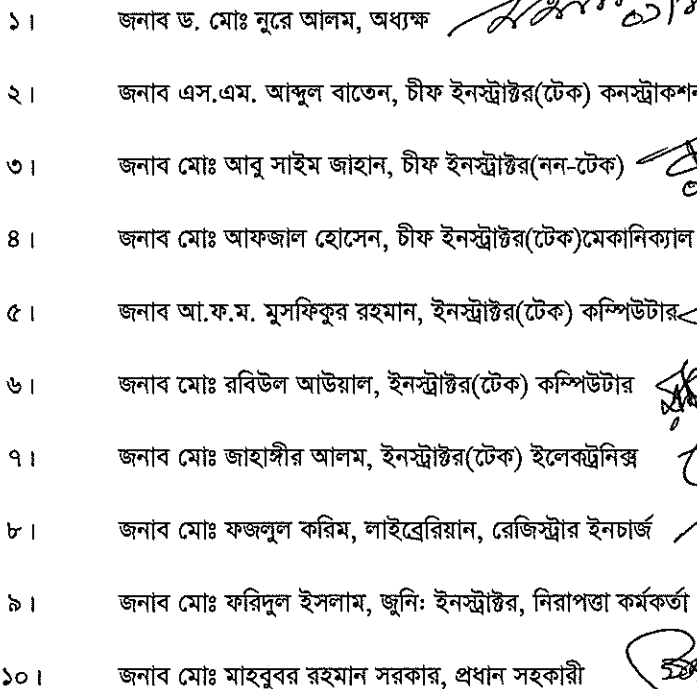 ১। জনাব ড. মোঃ নুরে আলম, অধ্যক্ষ
২। জনাব এস.এম. আব্দুল বাতেন, চীফ ইনস্ট্রাক্টর(টেক) কনস্ট্রাকশন
৩। জনাব মোঃ আবু সাইম জাহান, চীফ ইনস্ট্রাক্টর(নন-টেক)
৪। জনাব মোঃ আফজাল হোসেন, চীফ ইনস্ট্রাক্টর(টেক)মেকানিক্যাল
৫। জনাব আ.ফ.ম. মুসফিকুর রহমান, ইনস্ট্রাক্টর(টেক) কম্পিউটার
৬। জনাব মোঃ রবিউল আউয়াল, ইনস্ট্রাক্টর(টেক) কম্পিউটার
৭। জনাব মোঃ জাহাঙ্গীর আলম, ইনস্ট্রাক্টর(টেক) ইলেকট্রনিক্স
৮। জনাব মোঃ ফজলুল করিম, লাইব্রেরিয়ান, রেজিস্ট্রার ইনচার্জ
৯। জনাব মোঃ ফরিদুল ইসলাম, জুনিঃ ইনস্ট্রাক্টর, নিরাপত্তা কর্মকর্তা
১০। জনাব মোঃ মাহবুবর রহমান সরকার, প্রধান সহকারী